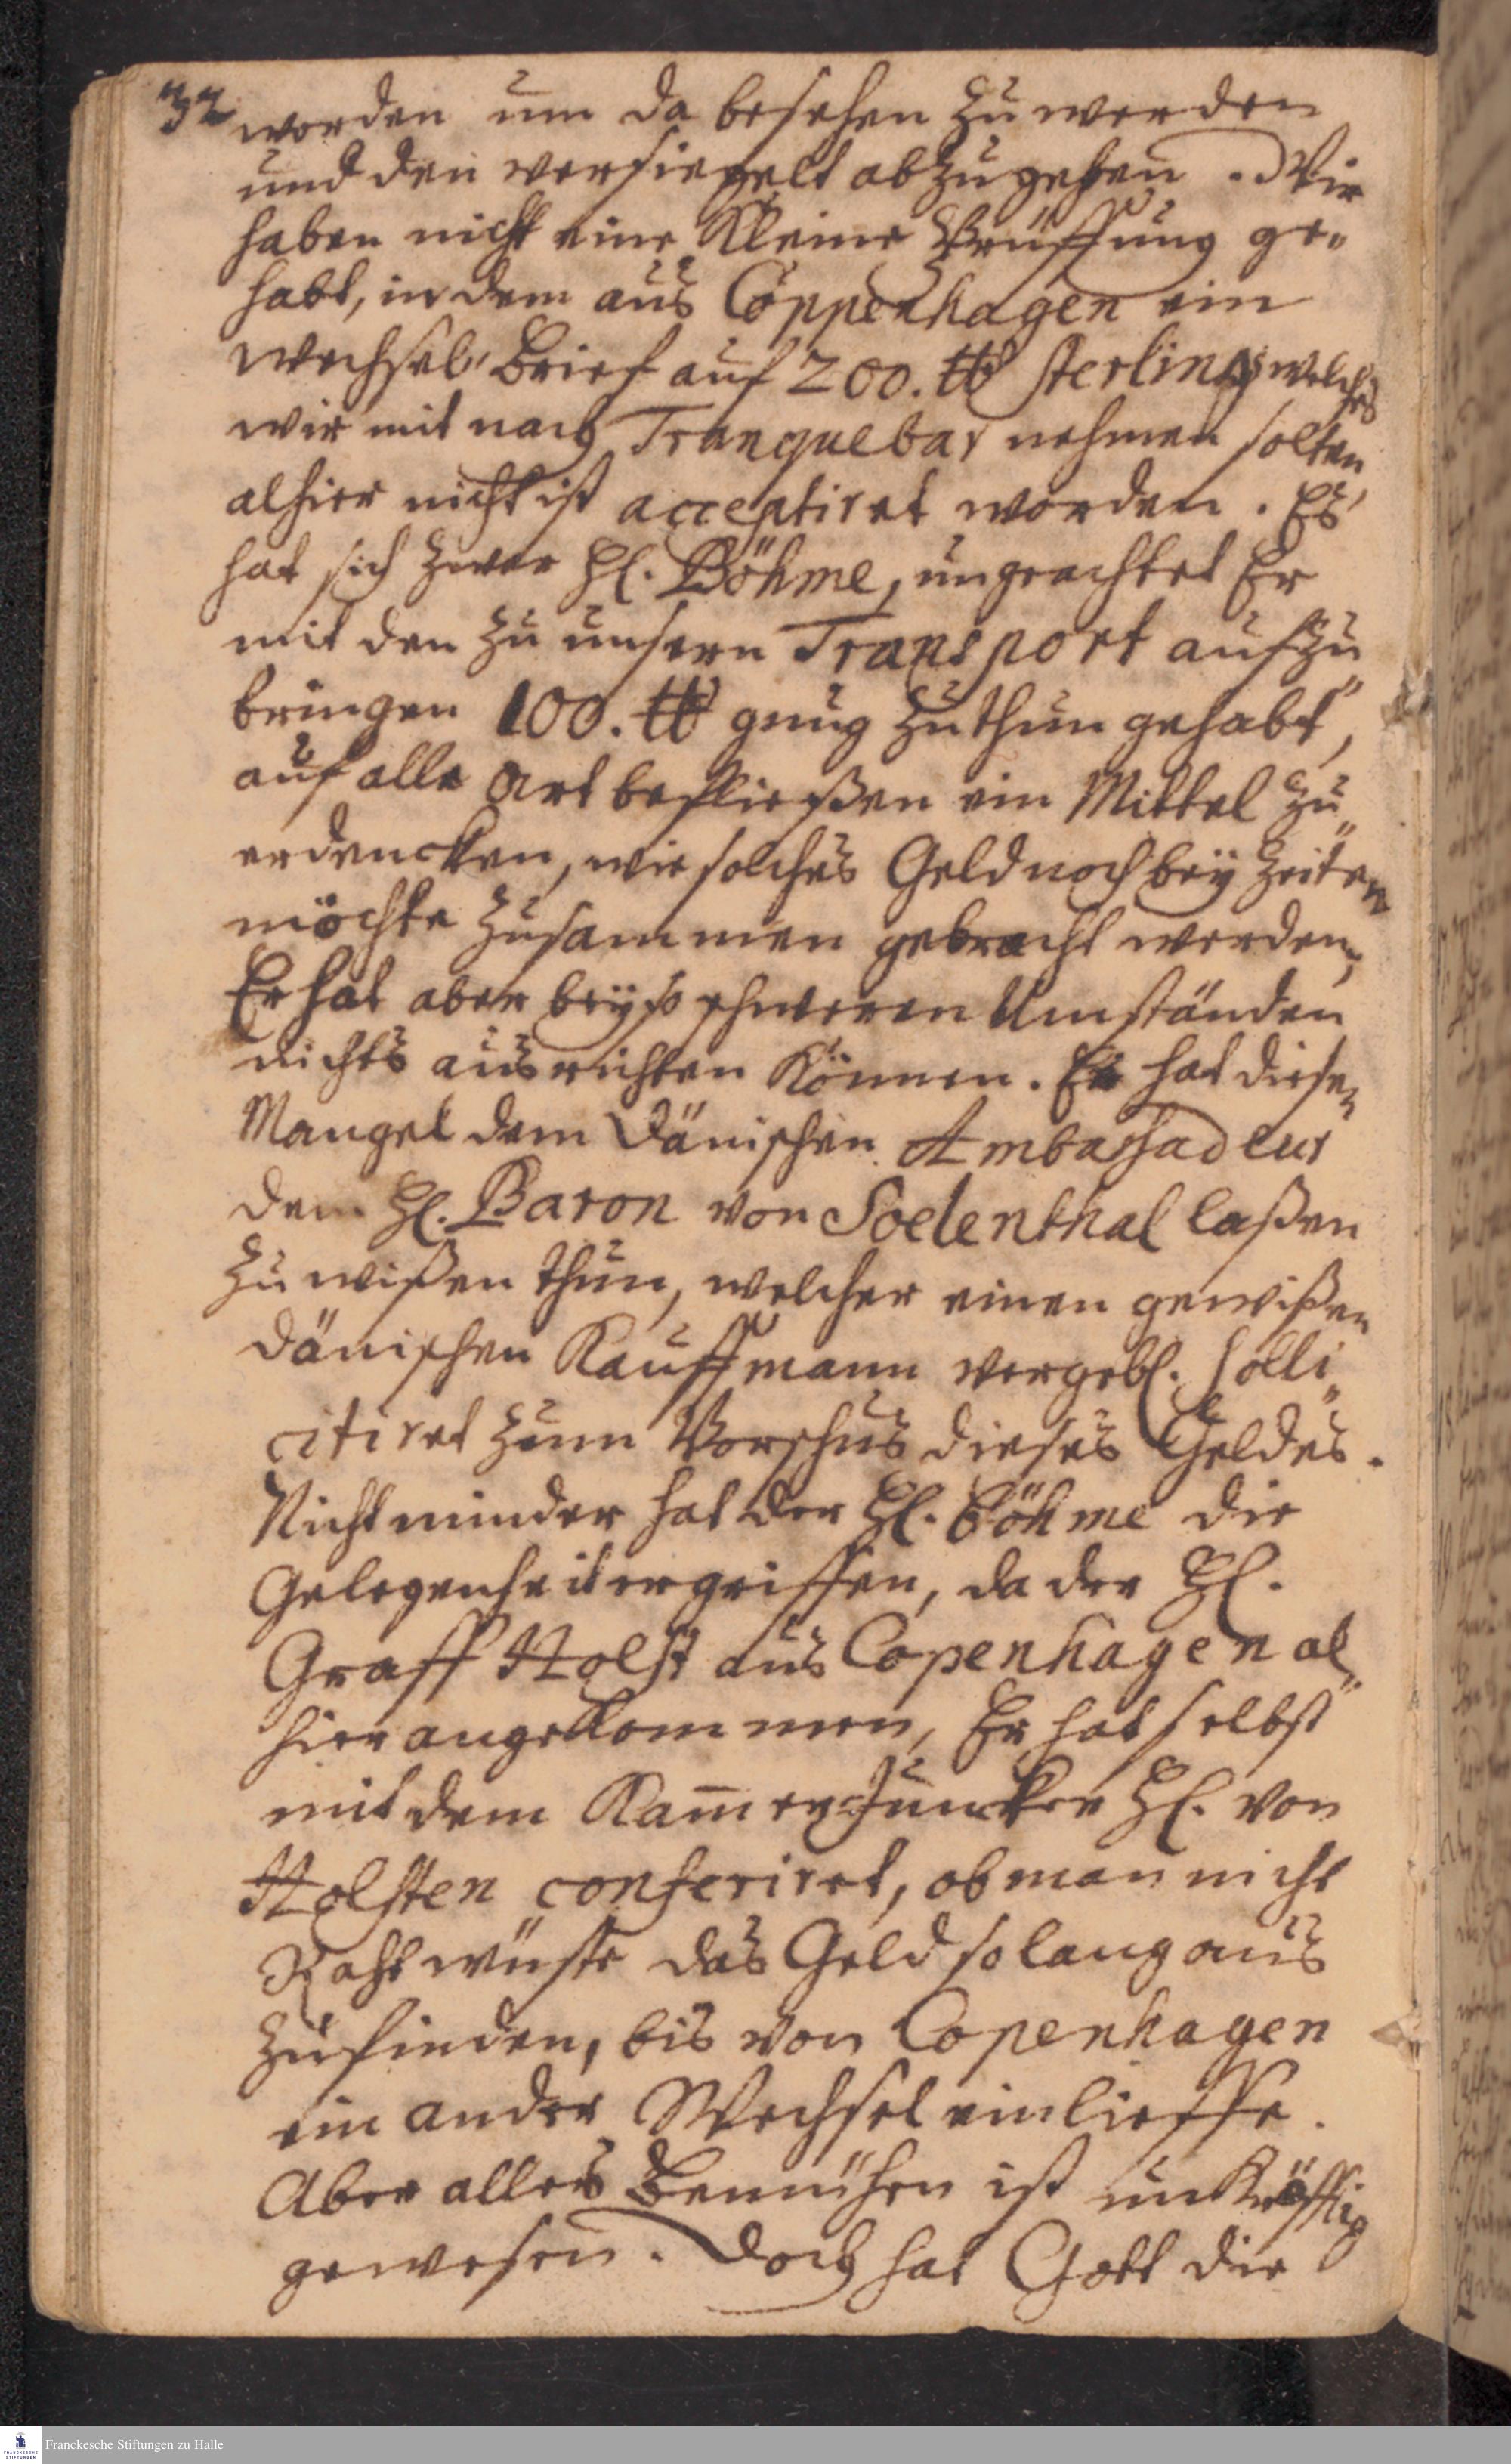 32
worden um da besehen zu werden
und den versiegelt abzugehen. Wir
haben nicht eine Kleine Prüffung ge„
habt, indem aus Coppenhagen ein
wechsel„brief auf 200. ℔ sterlings welches
wir mit nach Tranquebar nehmen solten,
alhier nicht ist acceptiret worden. Es
hat sich zwar Hl. Böhme, ungeachtet Er
mit den zu unsern Transport aufzu„
bringen 100. ℔ gnug zuthun gehabt,
auf alle Art befließen ein Mittel zu„
erdencken, wie solches Geld noch bey Zeiten
möchte zusammen gebracht werden,
Er hat aber bey so schweren Umständen
nichts ausrichten Können. Er hat diesen
Mangel dem Dänischen Ambassadeur
dem Hl. Baron von Soelenthal laßen
zu wißen thun, welcher einen gewißen
Dänischen Kauffmann vergebl. solli„
citiret zum Vorschus dieses Geldes.
Nicht minder hat der Hl. Böhme die
Gelegenheit ergriffen, da der Hl.
Graff Holst aus Copenhagen al„
hier angekommen, Er hat selbst
mit dem Kam̄er Juncker Hl. von
Holsten conferiret, ob man nicht
Raht wüste das Geld so lang aus
zufinden, bis von Copenhagen
ein ander Wechsel einlieffe.
Aber alles Bemühen ist unKräfftig
gewesen. Doch hat Gott die
Franckesche Stiftungen zu Halle